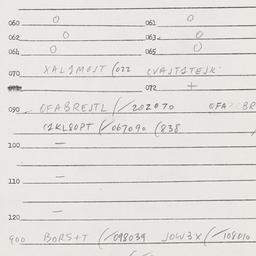 060 O 061 O
062 O 063 O
064 O 065 O
070 XALJMOST (022 CVAJTJTEJK
072 +
090 OFABREJTL (/202070 OFA BR
(1KL80PT (/067090 (838
100 —
110 —
120 —
900 BORS+T (/098039 JOW3X (/108010